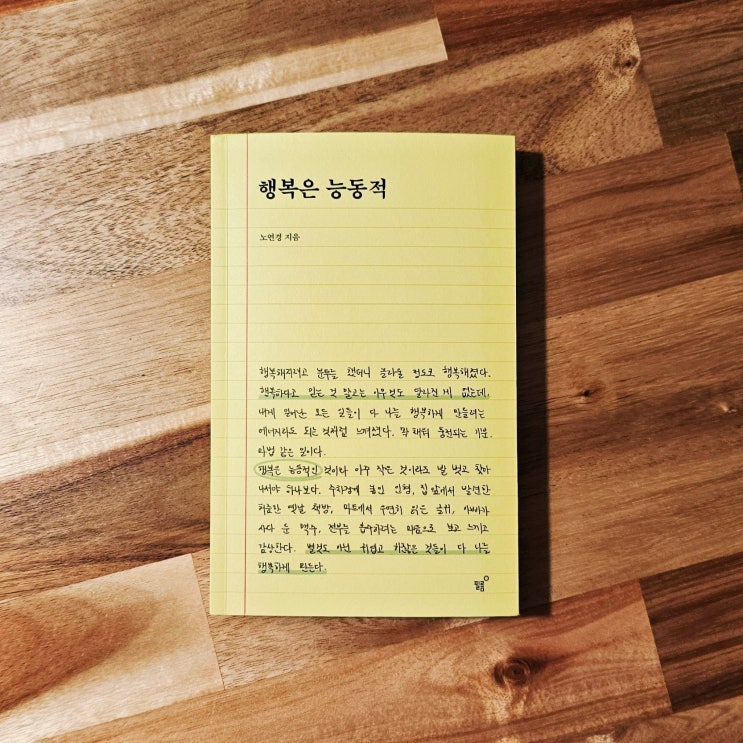 행복은 능동적
노연경 지음
행복해지려고 분부를 했더니 놀라울 정도로 행복해졌다.
행복하다고 믿는 것 말고는 아무것도 달라진 게 없는데,
내게 일어난 모든 일들이 다 나를 행복하게 만들려는
에너지라도 되는 것처럼 느껴졌다. 꽉 채워 충전되는 기분.
마법 같은 일이다.
행복은 능동적인 것이라 아주 작은 것이라도 발 벗고 찾아
나서야 하나보다. 수화기에 붙인 인형, 집 앞에서 발견한
허름한 옛날 책방, 마트에서 우연히 읽은 글귀, 아빠가
사다 둔 맥주, 전부를 흡수하려는 마음으로 보고 느끼고
감상한다. 별것도 아닌 귀엽고 하찮은 것들이 다 나를
행복하게 만든다.
필름